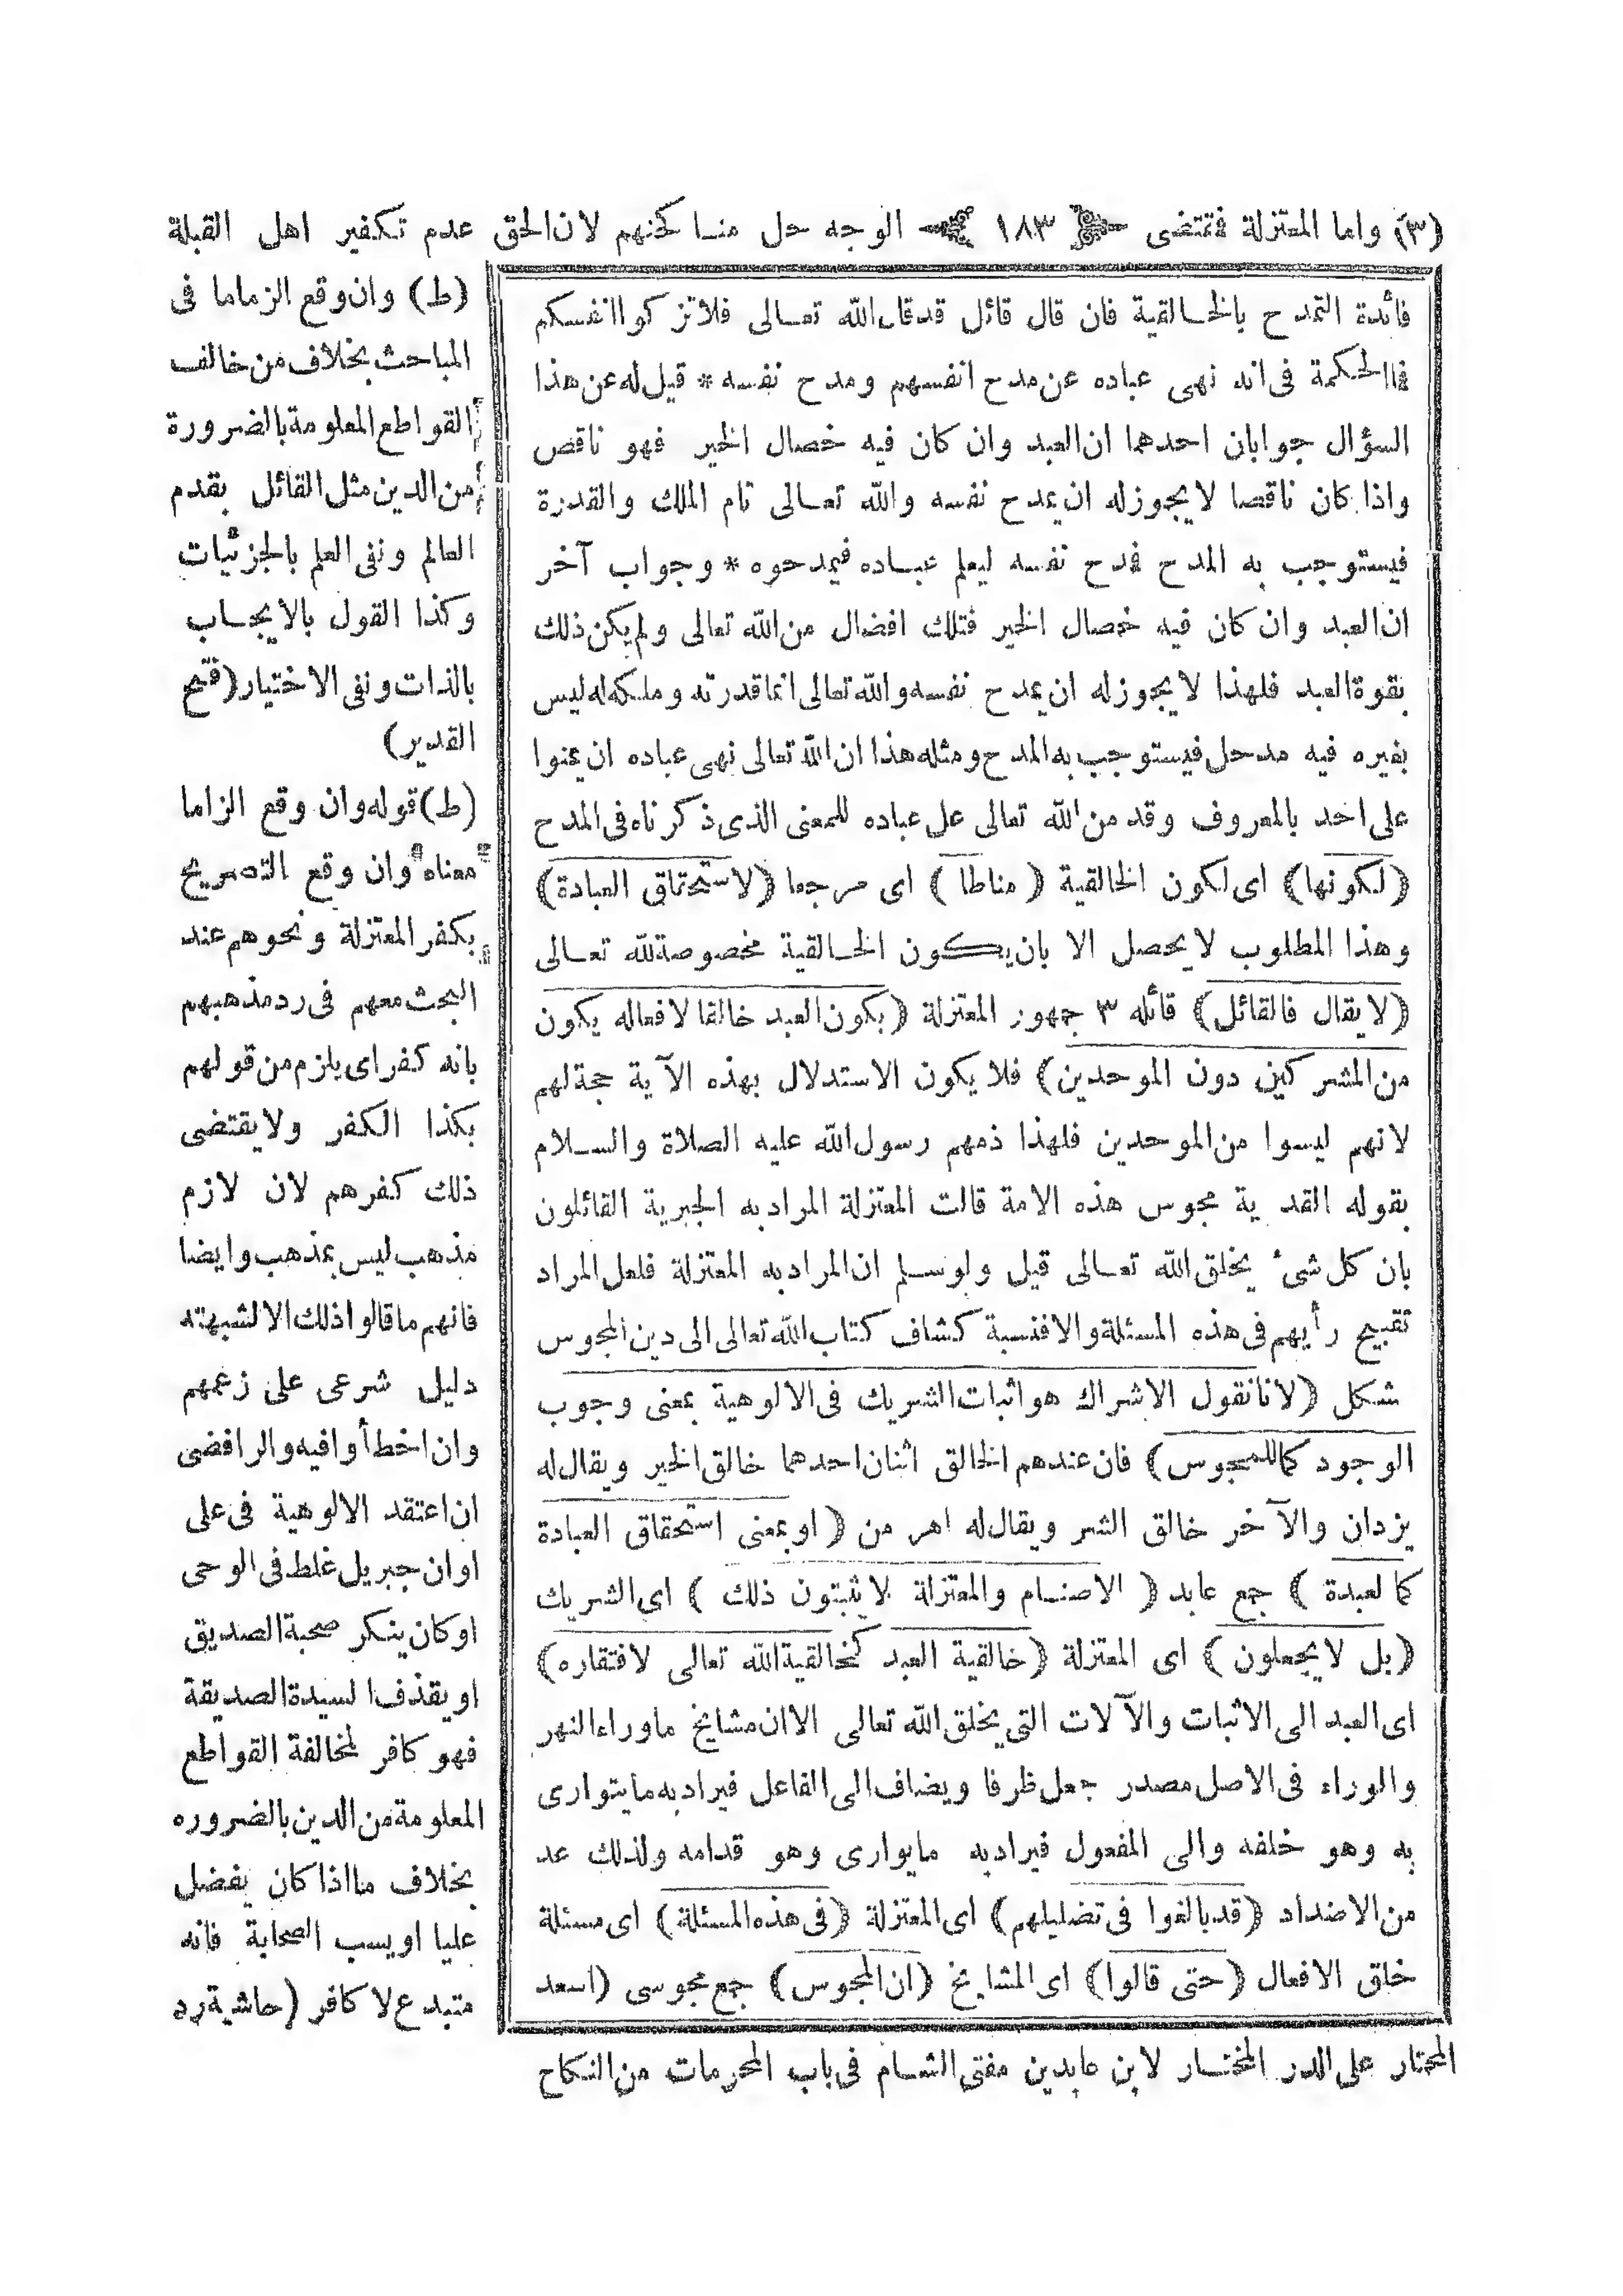 (٣) واما المعتزلة فمقتضى ١٨٣ الوجه حل مناكحتهم لان الحق عدم تكفير اهل القبلة
فائدة التمدح بالخالقية فان قال قائل قد قال الله تعالى فلا تزكوا انفسكم
فاالحكمة فى انه نهى عباده عن مدح انفسهم ومدح نفسه * قيل له عن هذا
السؤال جوابان احدهما ان العبد وان كان فيه خصال الخير فهو ناقص
واذا كان ناقصا لا يجوز له ان يمدح نفسه والله تعالى تام الملك والقدرة
فيستوجب به المدح فمدح نفسه ليعلم عباده فيمدحوه * وجواب آخر
ان العبد وان كان فيه خصال الخير فتلك افضال من الله تعالى ولم يكن ذلك
بقوة العبد فلهذا لا يجوز له ان يمدح نفسه والله تعالى انما قدرته وملكه له ليس
بغيره فيه مدخل فيستوجب به المدح ومثله هذا ان الله تعالى نهى عباده ان يمنوا
على احد بالمعروف وقد من الله تعالى على عباده للمعنى الذى ذكرناه فى المدح
(لكونها) اى لكون الخالقية (مناطا) اى مرجعا (لاستحقاق العبادة)
وهذا المطلوب لا يحصل الا بان يكون الخالقية مخصوصة لله تعالى
(لا يقال فالقائل) قائله ٣ جمهور المعتزلة (بكون العبد خالقا لافعاله يكون
من المشركين دون الموحدين) فلا يكون الاستدلال بهذه الآية حجة لهم
لانهم ليسوا من الموحدين فلهذا ذمهم رسول الله عليه الصلاة والسلام
بقوله القدية مجوس هذه الامة قالت المعتزلة المراد به الجبرية القائلون
بان كل شئ يخلق الله تعالى قيل ولو سلم ان المراد به المعتزلة فلعل المراد
تقبيح رأيهم فى هذه المسئلة والا فنسبة كشاف كتاب الله تعالى الى دين المجوس
شكل (لانا نقول الاشراك هو اثبات الشريك فى الالوهية بمعنى وجوب
الوجود كما للمجوس) فان عندهم الخالق اثنان احدهما خالق الخير ويقال له
يزدان والآخر خالق الشر ويقال له اهر من (او بمعنى استحقاق العبادة
كما لعبدة) جمع عابد (الاصنام والمعتزلة لا يثبتون ذلك) اى الشريك
(بل لا يجعلون) اى المعتزلة (خالقية العبد كخالقية الله تعالى لافتقاره)
اى العبد الى الاثبات والآلات التى يخلق الله تعالى الا ان مشايخ ماوراء النهر
والوراء فى الاصل مصدر جعل ظرفا ويضاف الى الفاعل فيراد به ما يتوارى
به وهو خلفه والى المفعول فيراد به ما يوارى وهو قدامه ولذلك عد
من الاضداد (قد بالغوا فى تضليلهم) اى المعتزلة (فى هذه المسئلة) اى مسئلة
خلق الافعال (حتى قالوا) اى المشايخ (ان المجوس) جمع مجوسى (اسعد
(ط) وان وقع الزماما فى
المباحث بخلاف من خالف
القواطع المعلومة بالضرورة
من الدين مثل القائل بقدم
العالم ونفى العلم بالجزئيات
وكذا القول بالايجاب
بالذات ونفى الاختيار (فتح
القدير)
(ط) قوله وان وقع الزاما
معناه وان وقع التصريح
بكفر المعتزلة ونحوهم عند
البحث معهم فى رد مذهبهم
بانه كفر اى يلزم من قولهم
بكذا الكفر ولا يقتضى
ذلك كفرهم لان لازم
مذهب ليس بمذهب وايضا
فانهم ما قالوا ذلك الا لشبهته
دليل شرعى على زعمهم
وان اخطأوا فيه والرافضى
ان اعتقد الالوهية فى على
او ان جبريل غلط فى الوحى
او كان ينكر صحبة الصديق
او يقذف السيدة الصديقة
فهو كافر لمخالفة القواطع
المعلومة من الدين بالضروره
بخلاف ما اذا كان يفضل
عليا او يسب الصحابة فانه
متبدع لا كافر (حاشية رد
المحتار على الدر المختار لابن عابدين مفتى الشام فى باب المحرمات من النكاح